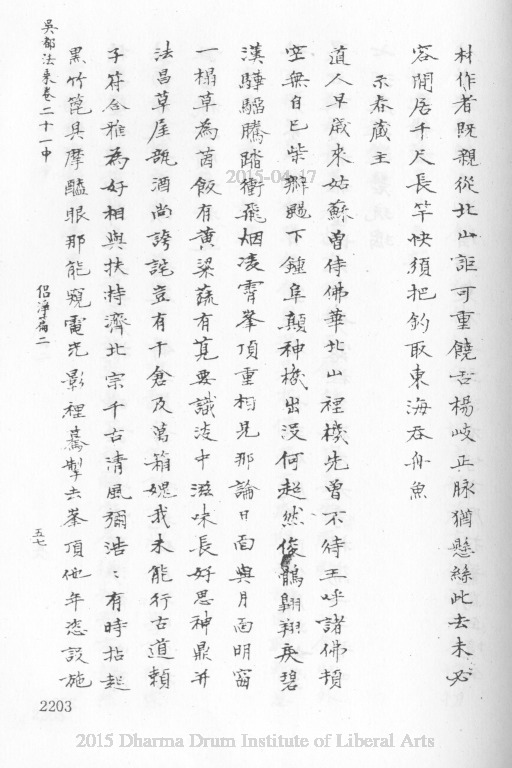 材作者既親從北山詎可重饒舌楊岐正脉猶懸絲此去未必
容閒居千尺長竿快須把釣取東海吞舟魚
示春藏主
道人早歲來姑蘇曾侍佛華北山裡機先曾不待王呼諸佛頓
空無自已柴鄉賜下鍾阜顛神機出沒何超然俊鶻翱翔疾碧
漢驊騮騰踏衝飛烟凌霄峯頂重相見那論日面與月面明窗
一榻草為茵飯有黃粱蔬有莧要識波中滋味長好思神鼎并
法昌草屋瓿酒尚誇詫豈有千倉及萬箱媿我未能行古道賴
子符合雅為好相與扶持濟北宗千古清風彌浩〻有時拈起
黑竹篦具摩醯眼那能窺電光影裡裔掣去峯頂他年恣設施
吳都法乘卷二十一中
侶淨篇二
五七
2203
2015-04-17
2015 Dharma Drum Institute of Liberal Arts